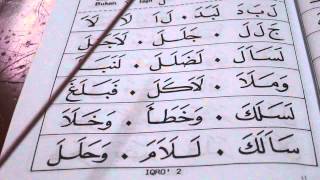 Bukan
لَ بَ دَ . لَبَدَ .
جَ لَ لَ . جَلَلَ . لَاجَلَ
لَسَالَ . لَضَلَلَ .
وَمَلَاَ . لَاَكَلَ . فَبَلَغَ
لَسَلَكَ . وَخَطَأَ . وَخَلَا
سَالَكَ . لَلَامَ . وَحَلَلَ
IQRO' 2